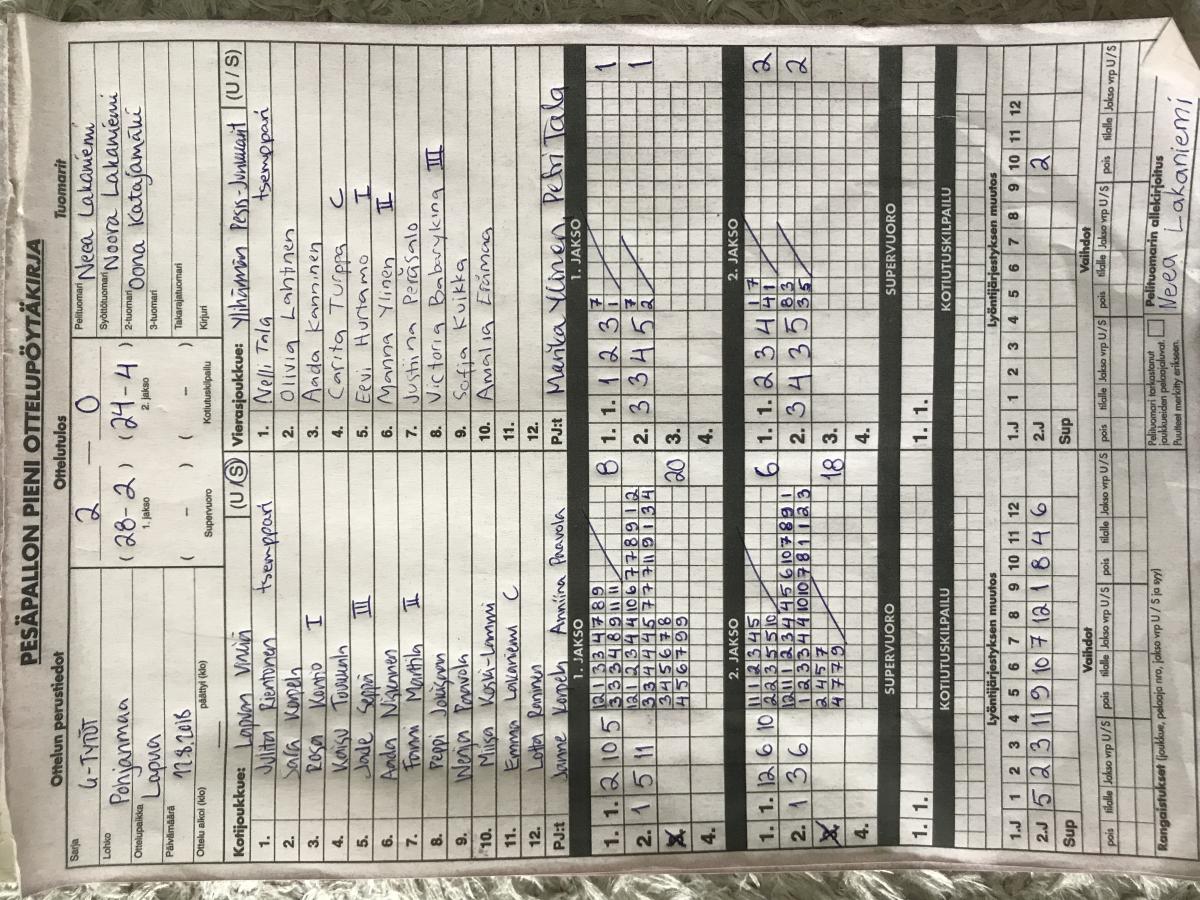 PESÄPALLON PIENI OTTELUPÖYTÄKIRJA
Ottelun perustiedot
Ottelutulos
Tuomarit
Sarja
Lohko Pohjanmaa
Ottelupaikka Lapua
Päivämäärä 12.8.2018
Ottelu alkoi (klo) päättyi (klo)
2 — 0
( 28 - 2 ) ( 24 - 4 )
1. jakso 2. jakso
( – ) ( – )
Supervuoro Kotiutuskilpailu
Pelituomari Neea Lakaniemi
Syöttötuomari Noora Lakaniemi
2-tuomari Oona Katajamäki
3-tuomari
Takarajatuomari
Kirjuri
Kotijoukkue: Lapuan Virkiä (U / S)
1. Julita Rientonen tsemppari
2. Sara
3. Roosa I
4. Kaisu
5. Jade Seppi III
6. Aada
7. Fanni Mattila II
8. Peppi
9. Nenja Paavola
10. Miisa Koski-Lammi
11. Emma Lakaniemi C
12. Lotta Raninen
PJ:t Janne Anniina Paavola
Vierasjoukkue: Ylihärmän Pesis-Junkkarit (U / S)
1. Nelli Tala tsemppari
2. Olivia Lahtinen
3. Aada Kanninen
4. Carita Turppa C
5. Eevi Huhtamo I
6. Manna Ylinen II
7. Justiina Peräsalo
8. Victoria Babarykina III
9. Sofja Kuikka
10. Amalia Erämaa
11.
12.
PJ:t Marika Ylinen Petri Tala
1. JAKSO
1. 1. 2 10 5
12 1 3 3 4 7 8 9
3 3 3 4 8 9 11 11
8
2. 1 5 11
12 1 2 3 4 4 10 6 7 7 8 9 1 2
3 3 4 4 4 5 7 7 7 11 9 1 3 4
3.
3 4 5 6 7 8
4 5 6 7 9 9
20
4.
1. JAKSO
1. 1. 1 2 3
7
1
1
2. 3 3 4 5
7
2
1
3.
4.
2. JAKSO
1. 1. 12 6 10
11 1 2 3 4 5
2 2 3 5 5 10
6
2. 1 3 6
12 11 1 2 3 4 4 5 6 10 7 8 9 1
1 2 3 3 4 4 10 10 7 8 1 1 2 3
3.
2 4 5 7
4 7 7 9
18
4.
2. JAKSO
1. 1. 2 3 4
1 7
4 1
2
2. 3 4 3 5
8 3
3 5
2
3.
4.
SUPERVUORO
1. 1.
SUPERVUORO
1. 1.
KOTIUTUSKILPAILU
KOTIUTUSKILPAILU
Lyöntijärjestyksen muutos
1.J 1 2 3 4 5 6 7 8 9 10 11 12
2.J 5 2 3 11 9 10 7 12 1 8 4 6
Sup
Lyöntijärjestyksen muutos
1.J 1 2 3 4 5 6 7 8 9 10 11 12
2.J 2
Sup
Vaihdot
pois tilalle Jakso vrp U/S pois tilalle Jakso vrp U/S pois tilalle Jakso vrp U/S
Vaihdot
pois tilalle Jakso vrp U/S pois tilalle Jakso vrp U/S pois tilalle Jakso vrp U/S
Rangaistukset (joukkue, pelaaja nro, jakso vrp U / S ja syy)
Pelituomari tarkastanut
joukkueiden pelaajaluvat.
Puutteet merkitty erikseen.
Pelituomarin allekirjoitus
Neea Lakaniemi